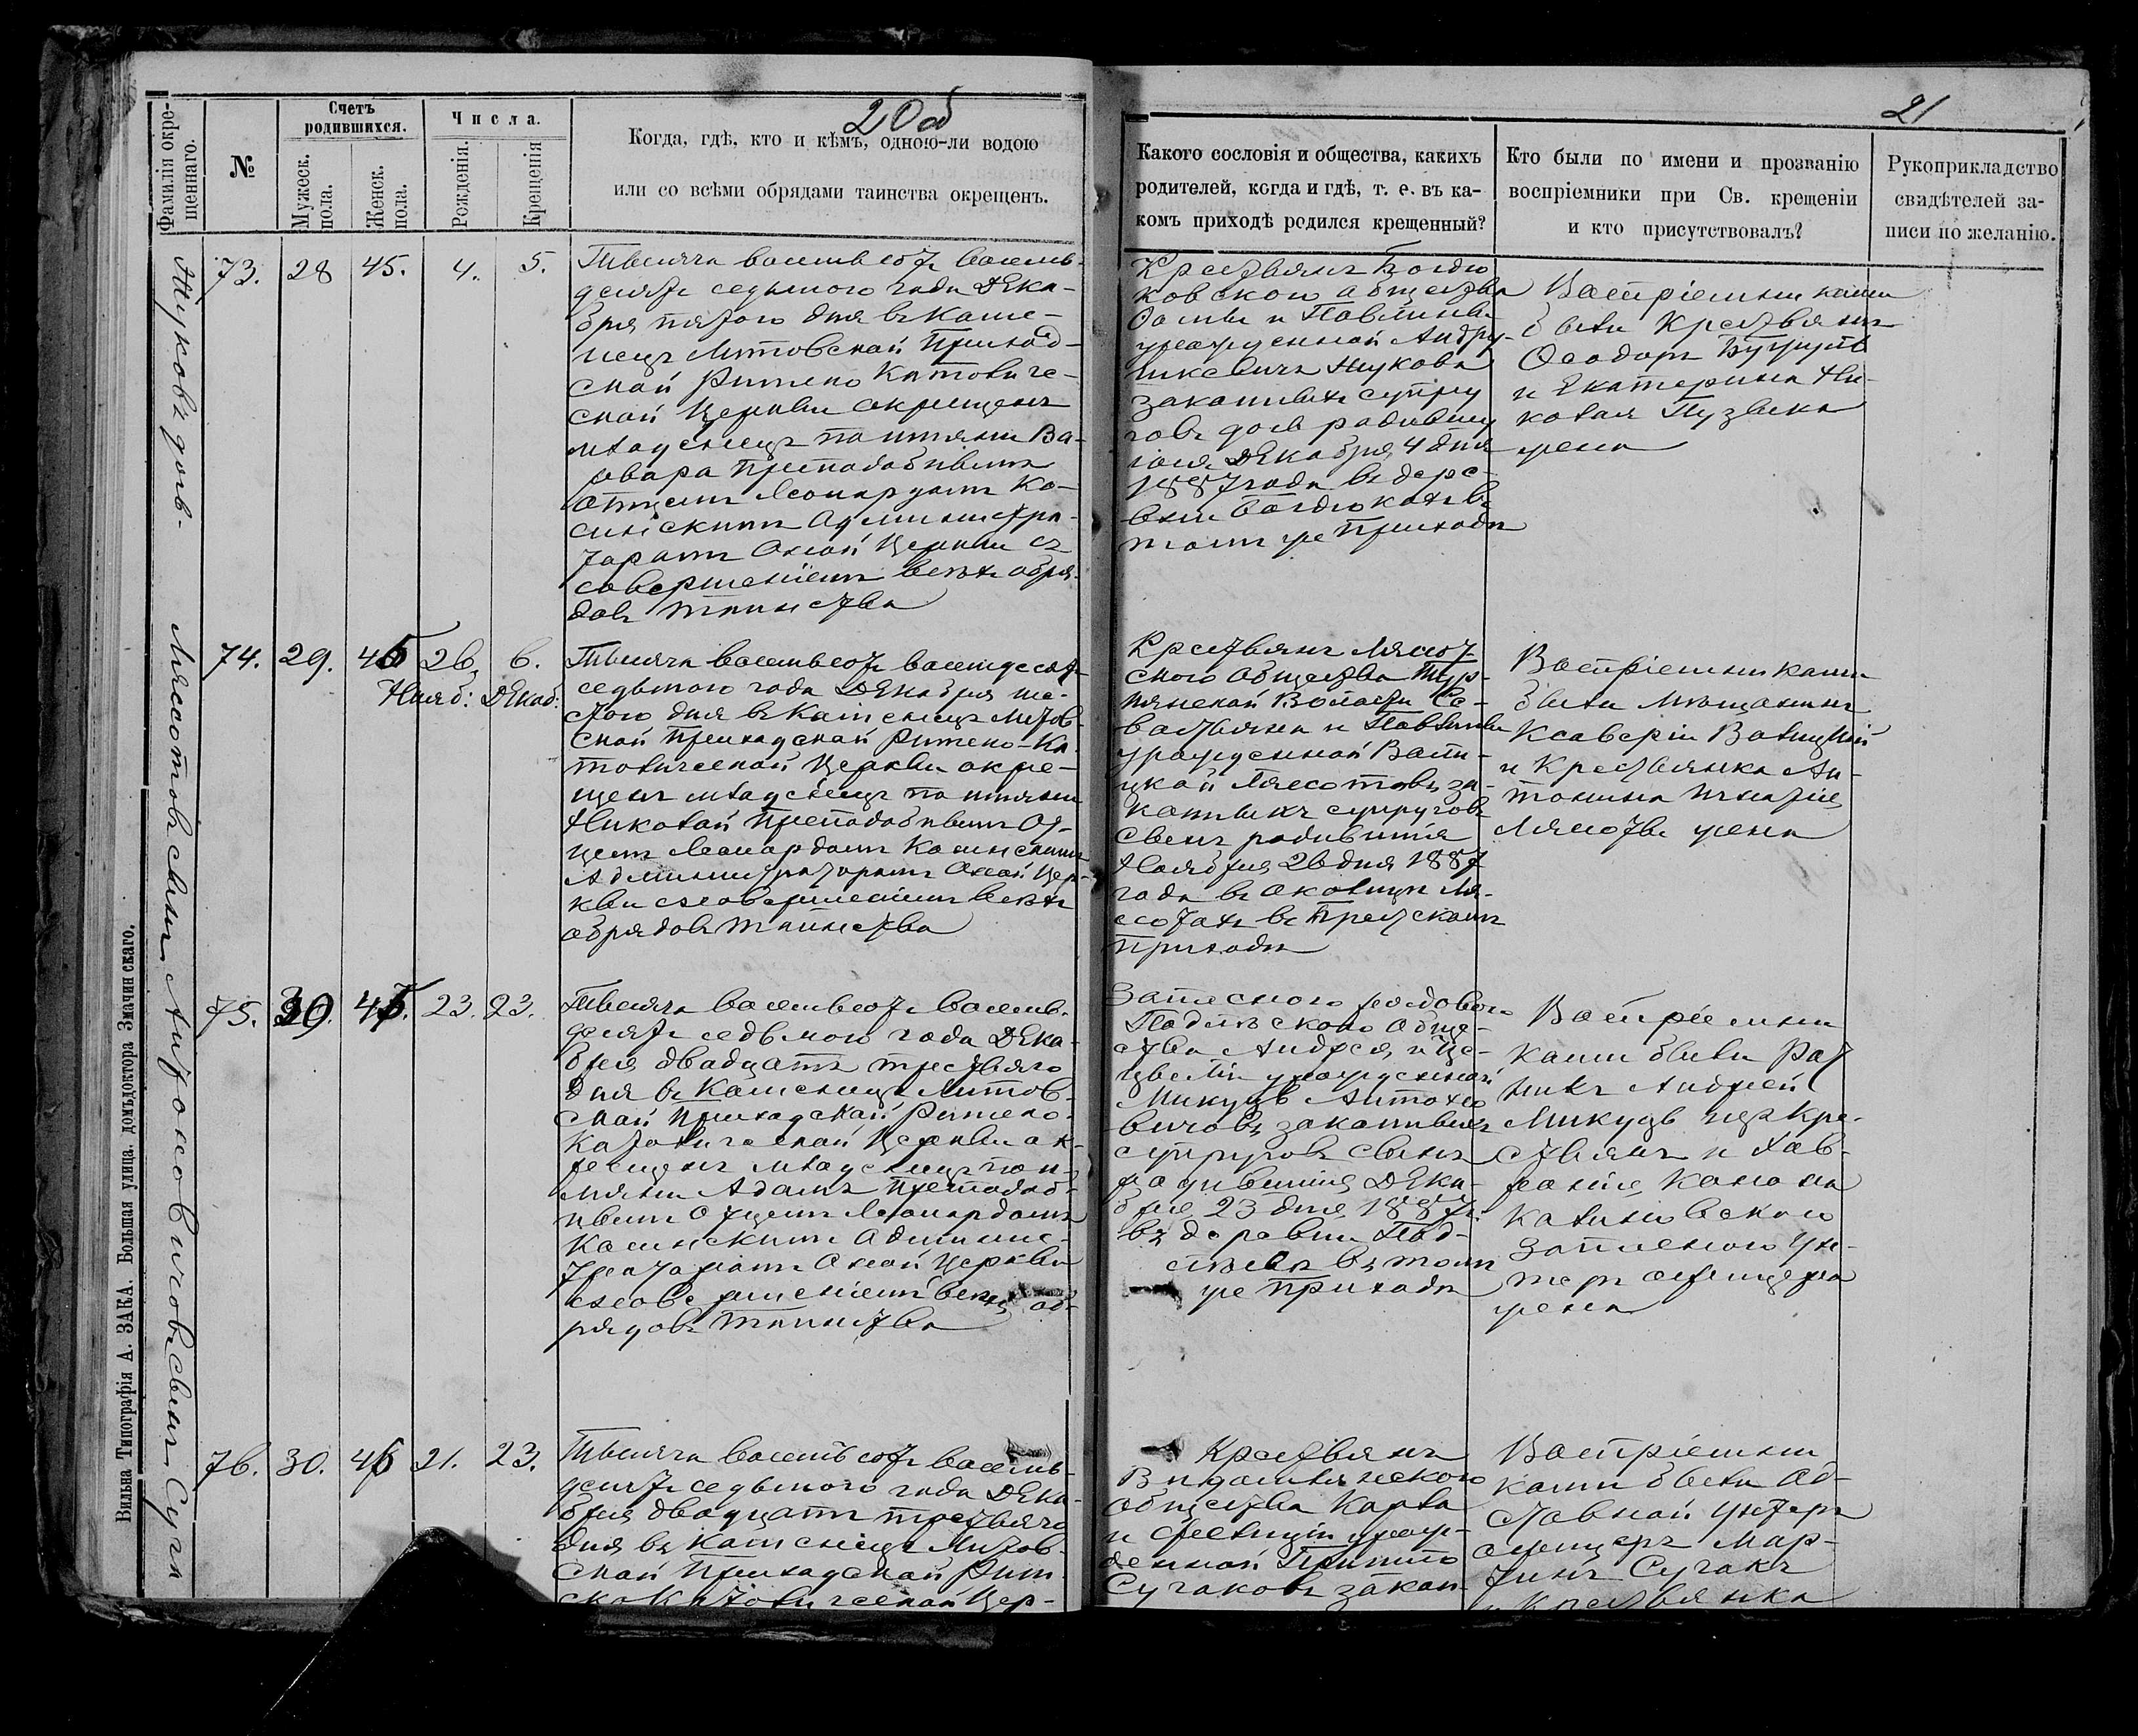 20об
21
Фамилія окре-
щеннаго.
№
Счетъ
родившихся.
Мужеск.
пола.
Женск.
пола.
Числа.
Рожденія.
Крещенія
Когда, гдѣ, кто и кѣмъ, одною-ли водою
или со всѣми обрядами таинства окрещенъ.
Какого сословія и общества, какихъ
родителей, когда и гдѣ, т. е. въ ка-
комъ приходѣ родился крещенный?
Кто были по имени и прозванію
воспріемники при Св. крещеніи
и кто присутствовалъ?
Рукоприкладство
свидѣтелей за-
писи по желанію.
Жуковъ дочь.
73. 28 45. 4. 5.
Тысяча восемьсотъ восемь-
десятъ седьмого года Дека-
бря пятого дня въ Каме-
нецъ Литовской Приход-
ской Римско Католиче-
ской Церкви окрещенъ
младенецъ по имени Ва-
рвара Преподобнымъ
Отцемъ Леонардомъ Ко-
синскимъ Администра-
торомъ Оной Церкви съ
совершеніемъ всѣхъ обря-
довъ таинства
Крестьянъ
общества
и Павлины
урожденной
Жукова
законныхъ супру
говъ дочь родивш
аяся Декабря 4 дня
1887 года въ дере-
вни
томъ же Приходѣ
Воспріемниками
были Крестьянинъ
Ѳеодоръ
и Екатерина
жена
Лясотовъ сынъ
74. 29. 45 26, 6.
Нояб: Декаб:
Тысяча восемьсотъ восемдесятъ
седьмого года Декабря ше-
стого дня въ Каменецъ Литов-
ской Приходской Римско-Ка-
толической Церкви окре-
щенъ младенецъ по имени
Николай Преподобнымъ От-
цемъ Леонардомъ Косинскимъ
Администраторомъ Оной Цер-
кви съ совершеніемъ всѣхъ
обрядовъ таинства
Крестьянъ Лясот-
ского Общества
Волости Се-
вастьяна и Павлины
урожденной
Лясотовъ за-
конныхъ супруговъ
сынъ родившійся
Ноября 26 дня 1887
года въ околицѣ Ля-
сотахъ въ
приходѣ
Воспріемниками
были Мѣщанинъ
Ксаверій
и Крестьянка Ан-
тонина Игнатія
Лясоты жена
Антоховичовъ сынъ
75. 30. 45. 23. 23.
Тысяча восемьсотъ восемь-
десятъ седьмого года Дека-
бря двадцать третьяго
дня въ Каменецъ Литов-
ской Приходской Римско-
Католической Церкви ок-
рещенъ младенецъ по и-
мени Адамъ Преподоб-
нымъ Отцемъ Леонардомъ
Косинскимъ Админис-
траторомъ Оной Церкви
съ совершеніемъ всѣхъ об-
рядовъ таинства
Запасного рядового
обще-
ства Андрея и Це-
циліи урожденной
Микуцъ Антохо
вичовъ законныхъ
супруговъ сынъ
родившійся Дека-
бря 23 дня 1887 г.
въ деревни
въ томъ
же приходѣ
Воспріемни
ками были Рат
никъ Андрей
Микуцъ изъ Кре-
стьянъ и
Калиновского
Запасного Ун-
теръ офицера
жена
Сучакъ
76. 30. 45 21. 23.
Тысяча восемьсотъ восемь-
десятъ седьмого года Дека-
бря двадцать третьяго
дня въ Каменецъ Литов-
ской Приходской Рим-
ско Католической Цер-
Крестьянъ
Общества Карла
и Фелиціи урож-
денной
Сучаковъ закон-
Воспріемни
ками были От-
ставной Унтеръ
офицеръ Мар-
тинъ Сучакъ
и Крестьянка
Вильна Типографія А. ЗАКА. Большая улица. домъ доктора Змачинскаго.